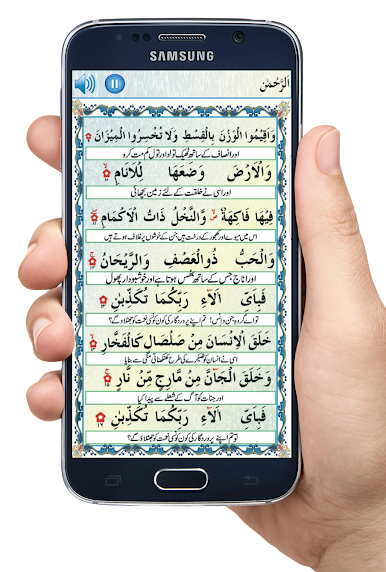 SAMSUNG
اَلرَّحْمٰن
وَاَقِيْمُوا الْوَزْنَ بِالْقِسْطِ وَلَا تُخْسِرُوا الْمِيْزَانَ
اور انصاف کے ساتھ ٹھیک تولو اور تول کم مت کرو
وَالْاَرْضَ وَضَعَهَا لِلْاَنَامِ
اور اسی نے خلقت کے لئے زمین بچھائی
فِيْهَا فَاكِهَةٌ وَّالنَّخْلُ ذَاتُ الْاَكْمَامِ
اس میں میوے اور کھجور کے درخت ہیں جن کے خوشوں پر غلاف ہوتے ہیں
وَالْحَبُّ ذُوالْعَصْفِ وَالرَّيْحَانُ
اور اناج جس کے ساتھ بھس ہوتا ہے اور خوشبودار پھول
فَبِاَيِّ اٰلَآءِ رَبِّكُمَا تُكَذِّبٰنِ
تو اے گروہ جن و انس! تم اپنے پروردگار کی کون کونسی نعمت کو جھٹلاؤ گے؟
خَلَقَ الْاِنْسَانَ مِنْ صَلْصَالٍ كَالْفَخَّارِ
اسی نے انسان کو ٹھیکرے کی طرح کھنکھناتی مٹی سے بنایا
وَخَلَقَ الْجَآنَّ مِنْ مَّارِجٍ مِّنْ نَّارٍ ۱۵
اور جنات کو آگ کے شعلے سے پیدا کیا
فَبِاَيِّ اٰلَآءِ رَبِّكُمَا تُكَذِّبٰنِ ۱۶
تو تم اپنے پروردگار کی کون کونسی نعمت کو جھٹلاؤ گے؟